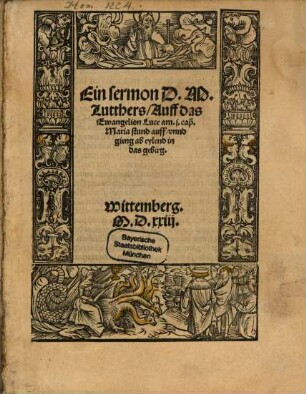 Hom. 1224.
Ein sermon D. M.
Lutthers/Auff das
Ewangelion Luce am .j. cap.
Maria stund auff/vnnd
gieng ab eylend in
das gebirg.
Wittemberg.
M. D. xxiij.
Bayerische
Staatsbibliothek
München